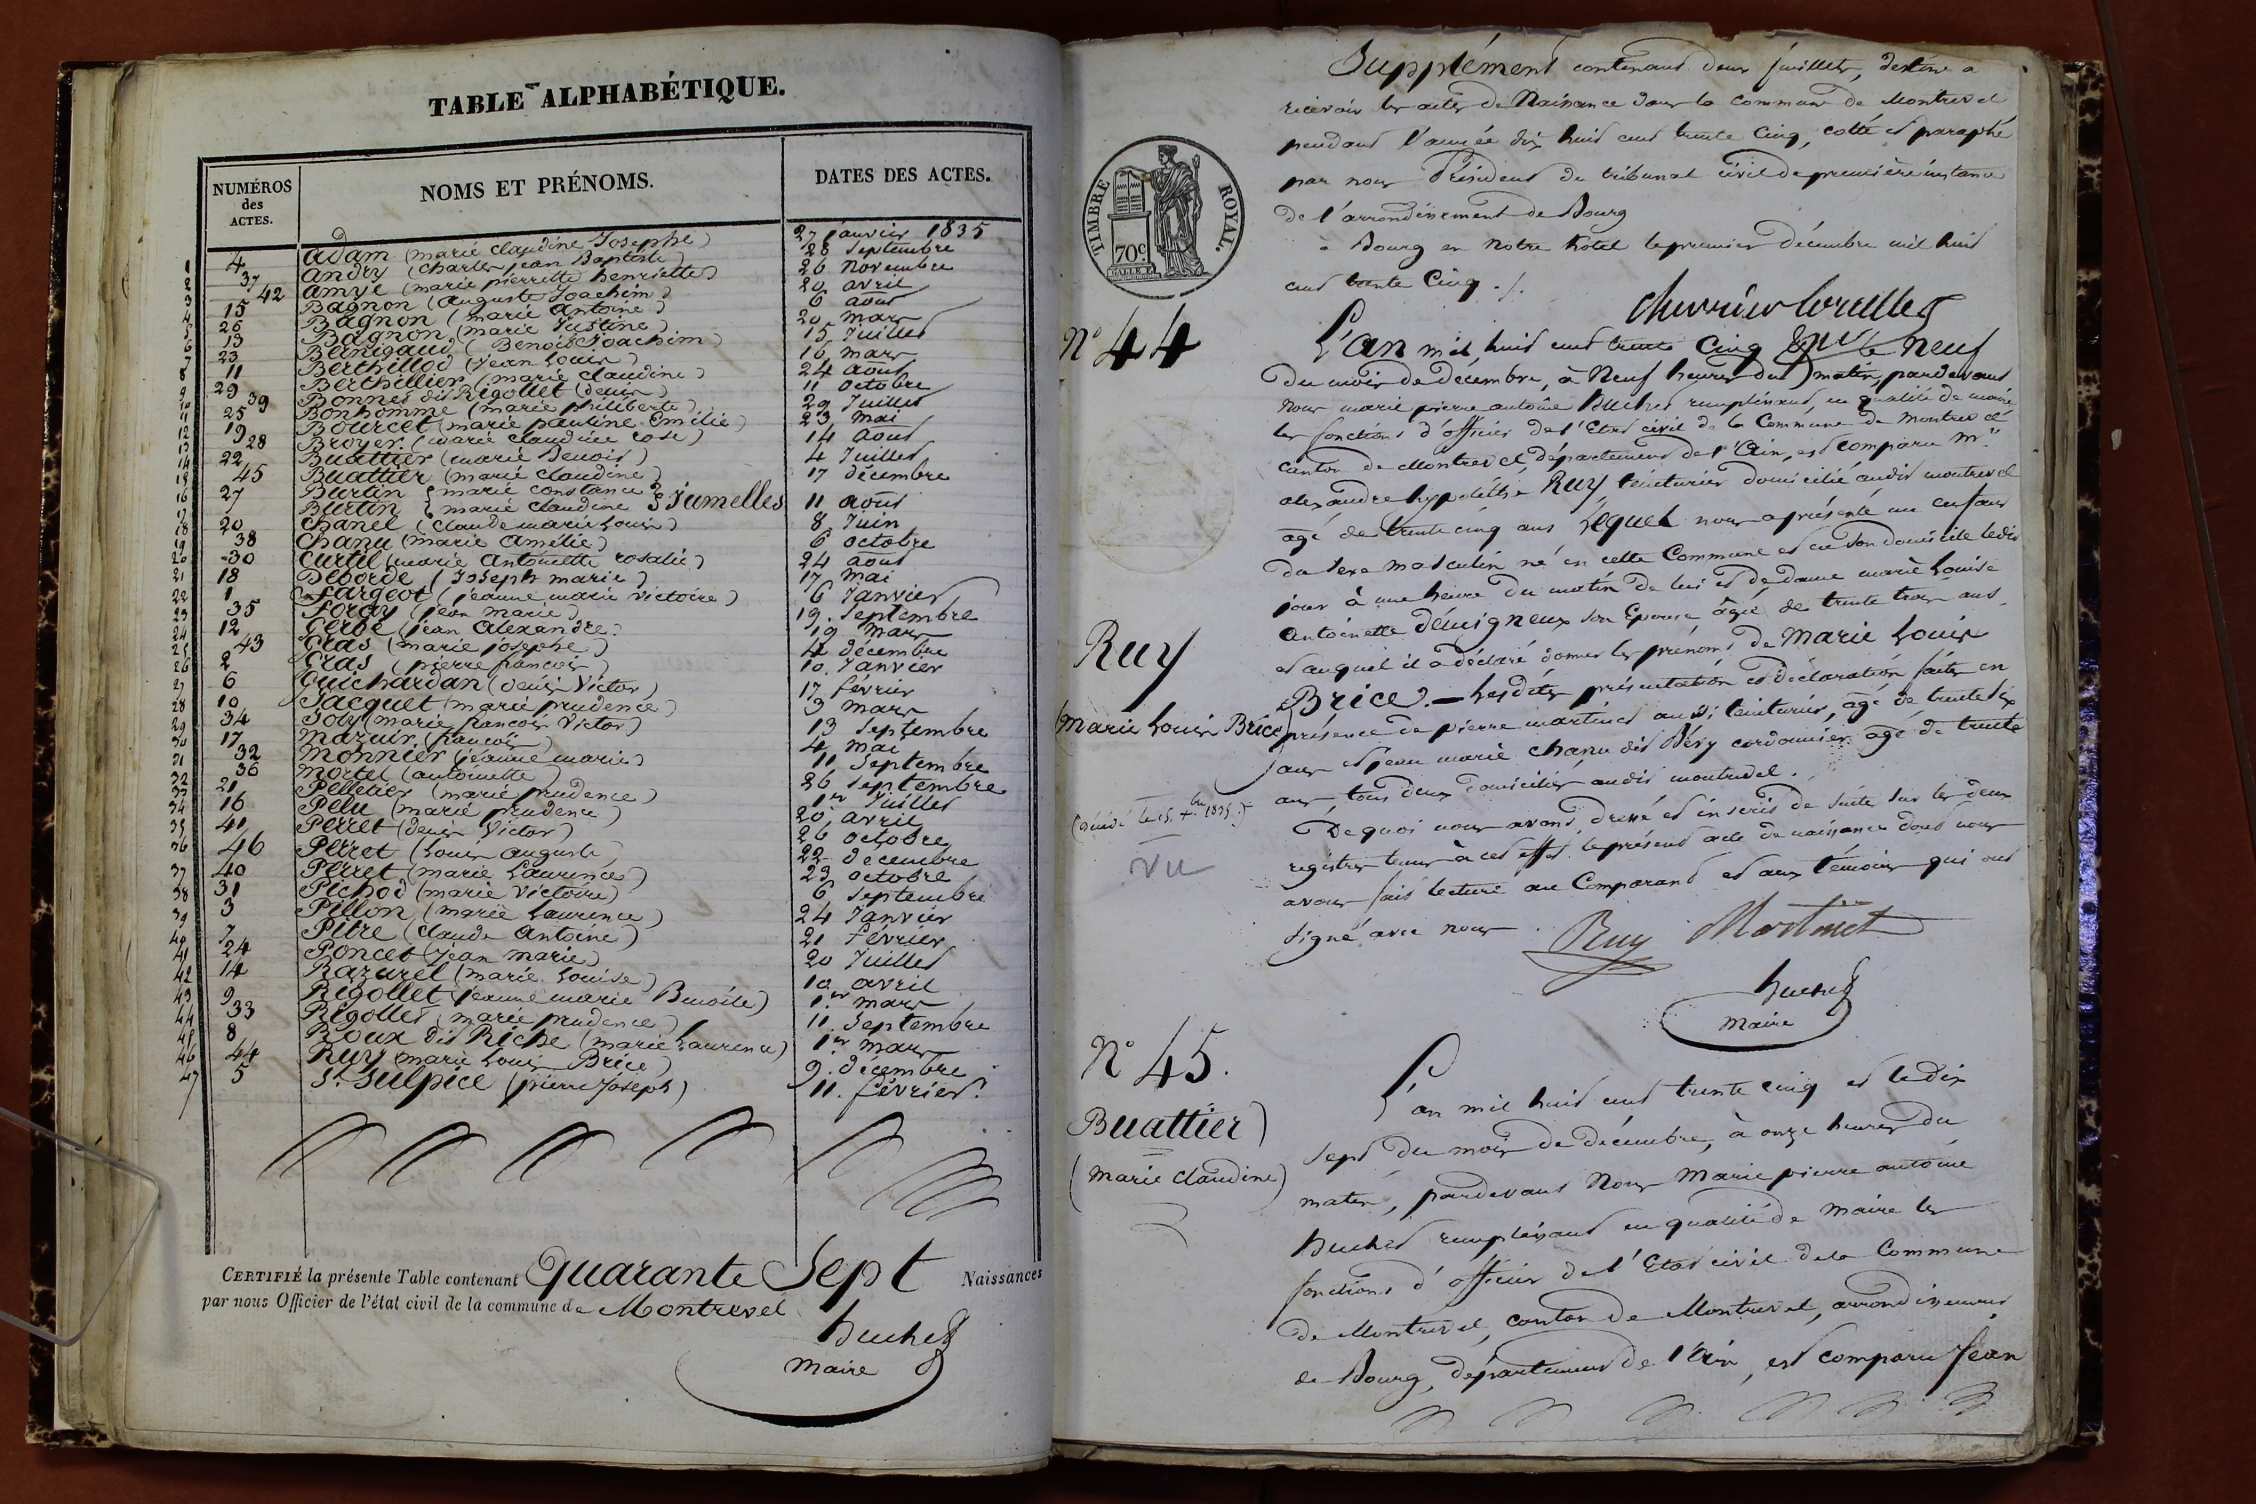 TABLE ALPHABÉTIQUE.
NUMÉROS des ACTES. NOMS ET PRÉNOMS. DATES DES ACTES.
1 4 Adam (marie claudine Josephe) 27 janvier 1835
2 37 Andry (Charles jean Baptiste) 28 Septembre
3 42 Amyé (marie pierrette henriette) 26 Novembre
4 15 Bagnon (Auguste Joachim) 20 avril
5 26 Bagnon (marie Antoine) 6 août
6 13 Bagnon (marie Justine) 20 mars
7 23 Bernigaud (Benoit Joachim) 15 Juillet
8 11 Berthillod (jean Louis) 16 mars
9 29 Berthillier (marie claudine) 24 août
10 39 Bonnet dit Rigollet (denis) 11 octobre
11 25 Bonhomme (marie philiberte) 29 Juillet
12 19 Bourcet (marie pauline Emilie) 23 mai
13 28 Broyer (marie claudine rose) 14 août
14 22 Buattier (marie Benoit) 4 Juillet
15 45 Buattier (marie claudine) 17 décembre
16 27 Burtin { marie constance } Jumelles
17 Burtin { marie claudine } 11 août
18 20 Chanel (claude marie Louis) 8 Juin
19 38 Chanu (marie Amélie) 6 octobre
20 30 Curtil (marie Antoinette rosalie) 24 août
21 18 Deborde (Joseph marie) 17 mai
22 1 Fargeot (jeanne marie victoire) 6 Janvier
23 35 Foray (jean marie) 19 Septembre
24 12 Gerbe (jean Alexandre) 19 mars
25 43 Gras (marie josephe) 4 décembre
26 2 Gras (pierre françois) 10 Janvier
27 6 Guichardan (denis Victor) 17 février
28 10 Jacquet (marie prudence) 3 mars
29 34 Joly (marie françois Victor) 13 Septembre
30 17 Mazuir (françois) 4 mai
31 32 Monnier (jeanne marie) 11 Septembre
32 36 Mortel (antoinette) 26 Septembre
33 21 Pelletier (marie prudence) 1er Juillet
34 16 Pelu (marie prudence) 20 avril
35 41 Perret (denis Victor) 26 octobre
36 46 Perret (Louis auguste) 22 décembre
37 40 Perret (marie Laurence) 23 octobre
38 31 Pichod (marie Victoire) 6 Septembre
39 3 Pillon (marie Laurence) 24 Janvier
40 7 Pitre (claude Antoine) 21 février
41 24 Poncet (jean marie) 20 Juillet
42 14 Razurel (marie Louise) 10 avril
43 9 Rigollet (jeanne marie Benoite) 1er mars
44 33 Rigollet (marie prudence) 11 Septembre
45 8 Roux dit Riche (marie Laurence) 1er mars
46 44 Ruy (marie Louis Brice) 9 décembre
47 5 St Sulpice (pierre Joseph) 11 février
CERTIFIÉ la présente Table contenant Quarante Sept Naissances
par nous Officier de l'état civil de la commune de Montrevel
Buchet
Maire
Supplément contenant deux feuillets, destiné a
recevoir les actes de Naissance dans la commune de Montrevel
pendant l'année dix huit cent trente Cinq, cotté et paraphé
par nous Président du tribunal civil de première instance
de l'arrondissement de Bourg
a Bourg en Notre hôtel le premier décembre mil huit
cent trente Cinq ./.
TIMBRE ROYAL.
70c.
N° 44
L'an mil huit cent trente Cinq et le Neuf
du mois de décembre, à Neuf heures du matin, pardevant
Nous marie pierre antoine Buchet remplissant, en qualité de maire
les fonctions d'officier de l'Etat civil de la Commune de Montrevel
canton de Montrevel, département de l'Ain, est comparu Mr
alexandre hypolitte Ruy teinturier domicilié audit montrevel
agé de trente cinq ans lequel nous a présenté un enfant
du sexe masculin né en cette Commune et en son domicile ledit
jour à une heure du matin de lui et de dame marie Louise
Antoinette son Epouse âgée de trente trois ans
et auquel il a déclaré donner les prénoms de Marie Louis
Brice. — Lesdites présentation et déclaration faites en
présence de pierre martinet aussi teinturier, âgé de trente six
ans et jean marie chanu dit Béry cordonnier âgé de trente
ans, tous deux domiciliés audit montrevel.
De quoi nous avons dressé et inscrit de suite sur les deux
registres tenus à cet effet le présent acte de naissance dont nous
avons fait lecture au Comparant et aux témoins qui ont
signé avec nous.
Ruy
(Marie Louis Brice)
(décédé le 15 Xbre 1835.)
Vu
Ruy Martinet
Buchet
Maire
N° 45.
Buattier
(marie claudine)
L'an mil huit cent trente cinq et le dix
sept du mois de décembre, à onze heures du
matin, pardevant Nous Marie pierre antoine
Buchet remplissant en qualité de maire les
fonctions d'officier de l'Etat civil de la Commune
de Montrevel, canton de Montrevel, arrondissement
de Bourg, département de l'Ain, est comparu Jean